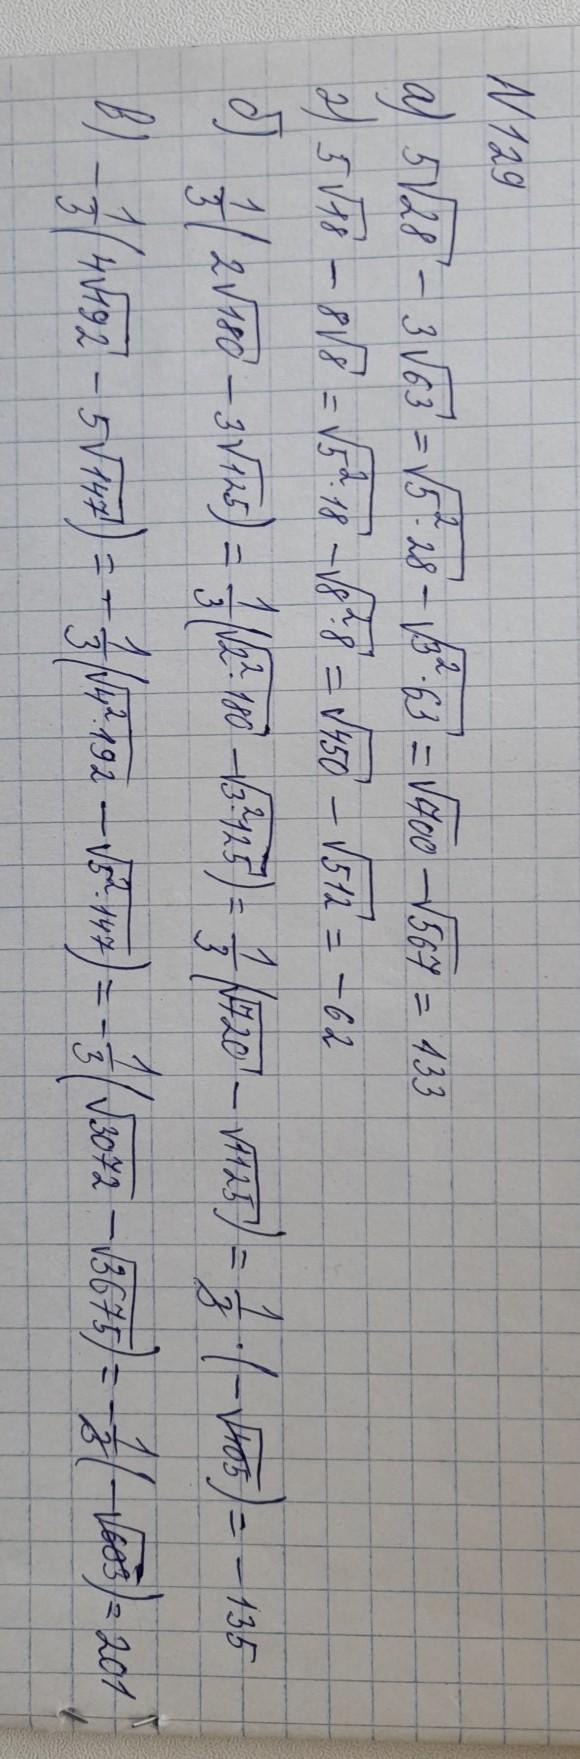 N 129
а) 5√28 - 3√63 = √5²·28 - √3²·63 = √700 - √567 = 133
г) 5√18 - 8√8 = √5²·18 - √8²·8 = √450 - √512 = -62
б) 1/3 (2√180 - 3√125) = 1/3 (√2²·180 - √3²·125) = 1/3 (√720 - √1125) = 1/3 · (-√405) = -135
в) -1/3 (4√192 - 5√147) = -1/3 (√4²·192 - √5²·147) = -1/3 (√3072 - √3675) = -1/3 (-√603) = 201